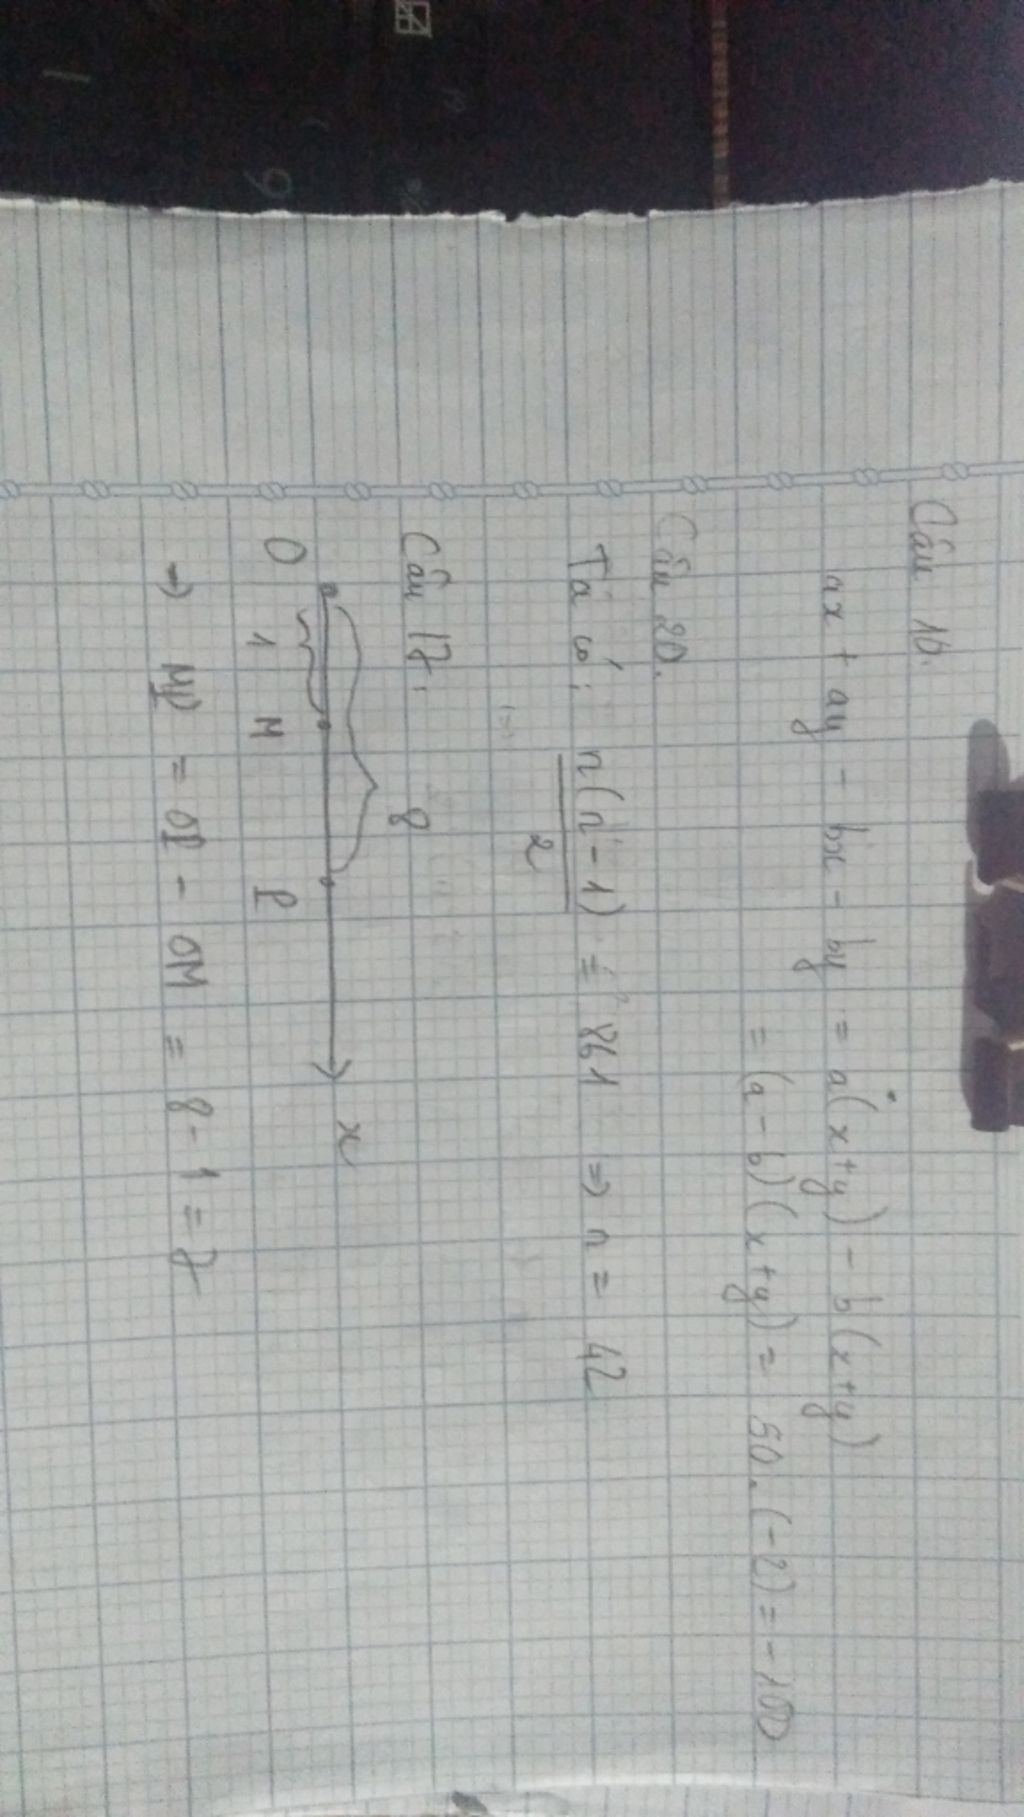 Câu 16.
ax + ay - bx - by = a(x+y) - b(x+y)
= (a-b)(x+y) = 50.(-2) = -100
Câu 20.
Ta có: n(n-1)/2 = 861 => n = 42
Câu 17.
8
O 1 M P x
→ MP = OP - OM = 8 - 1 = 7